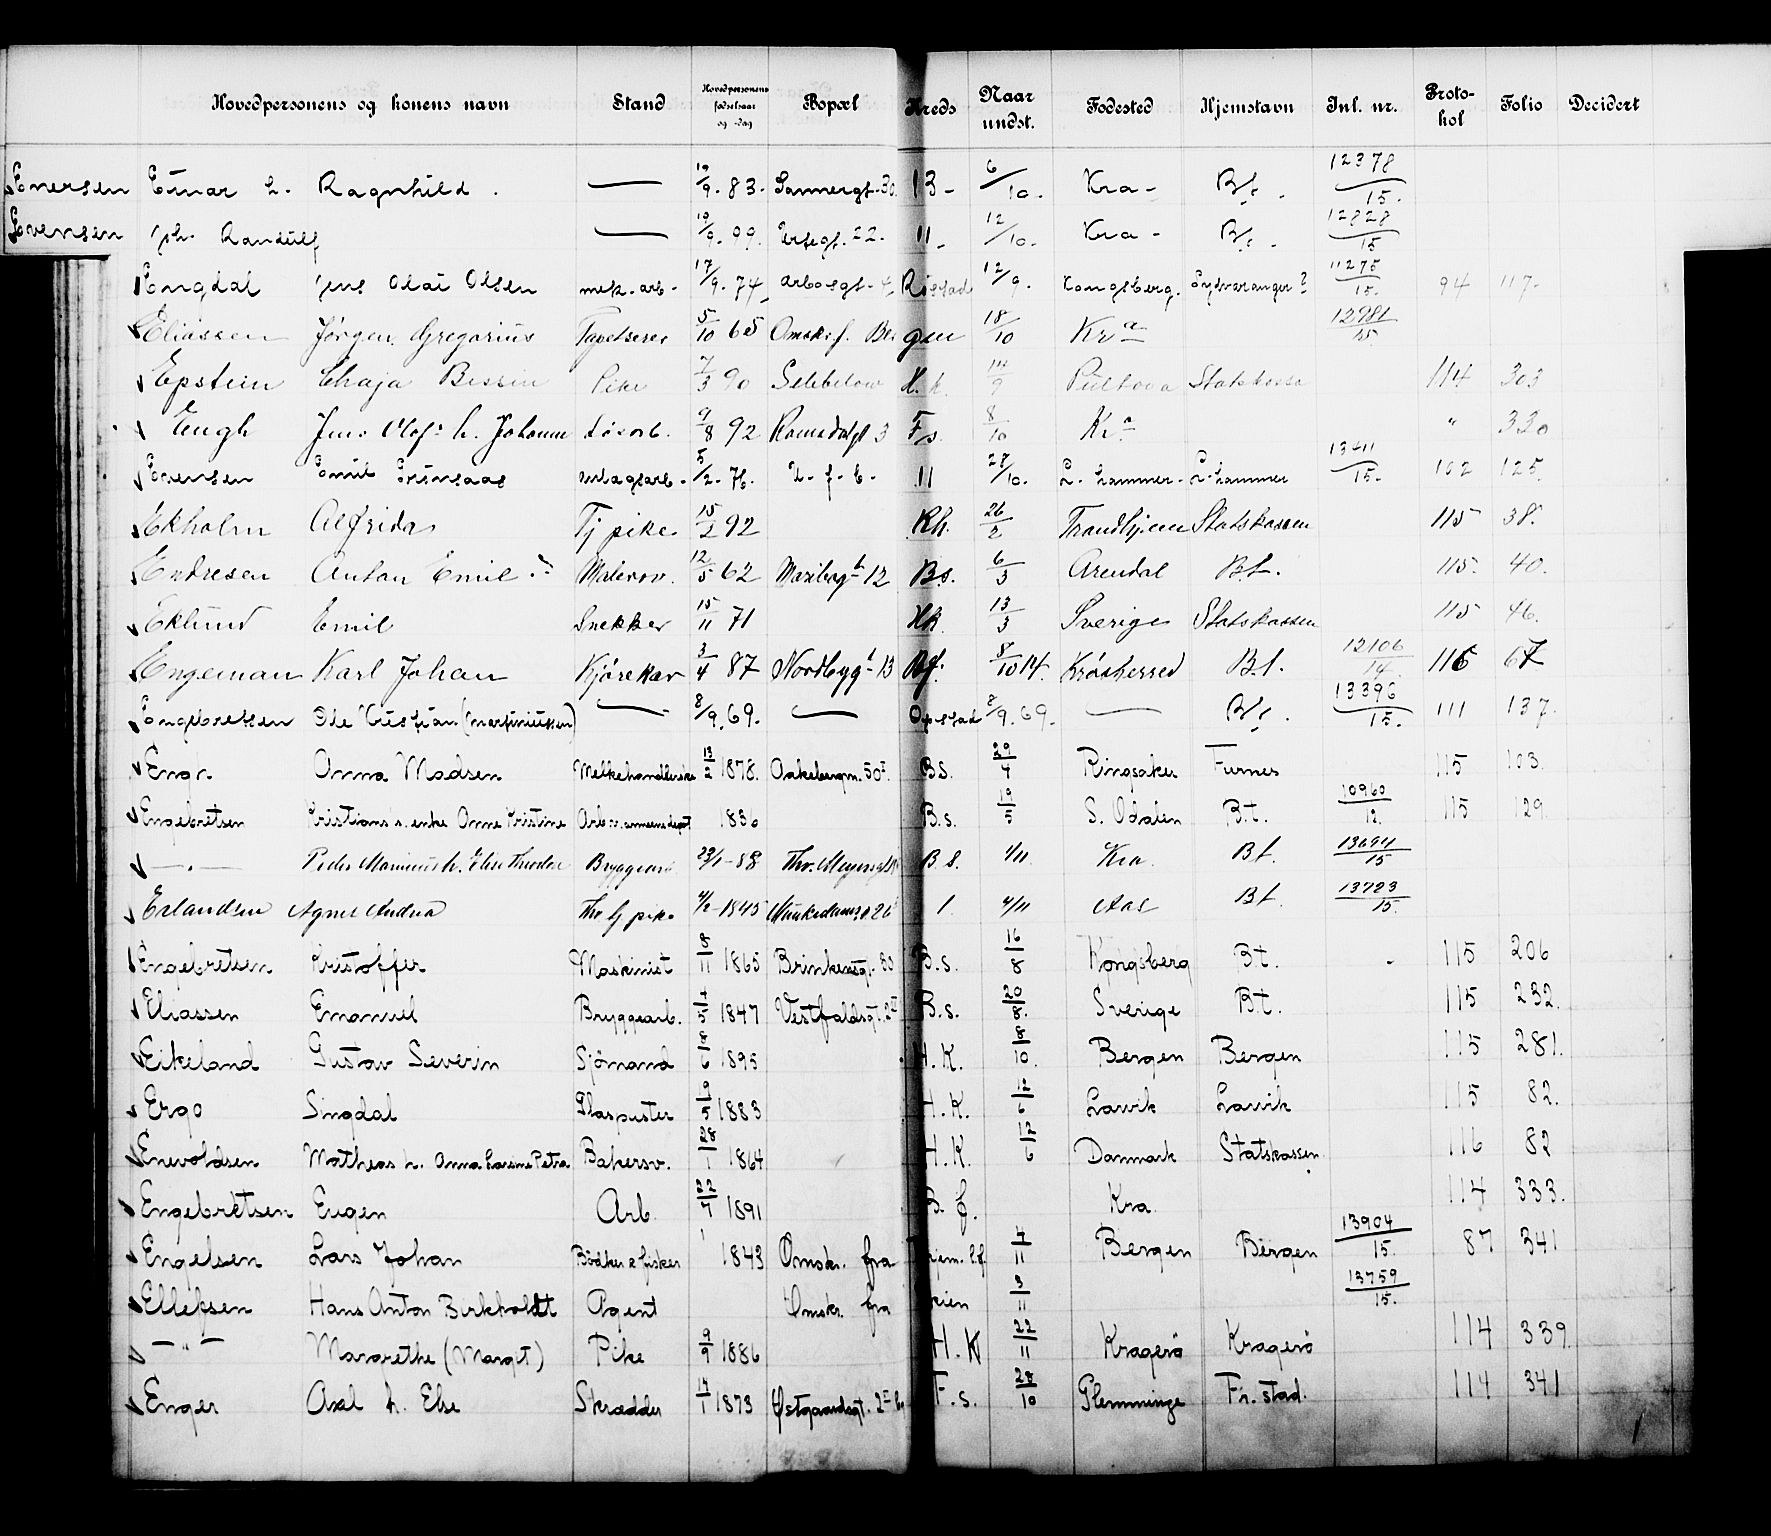 Hovedpersonens og konens navn Stand Hovedpersonens fødselsaar og -dag Bopæl Kreds Naar undst. Fødested Hjemstavn Inl. nr. Protokol Folio Decidert
Enersen Einar h. Ragnhild. — 19/9. 83. Sannergt. 30. 13 - 6/10. Kra - B.t. 12378/15.
Evensen Randulf — 19/9. 99. 22. 11 - 12/10. Kra - B.t. 12828/15
Engdal Jens Olai Olsen mek. arb. 17/9. 74 Arbosgt. 4 Røstad 12/9. Kongsberg. Sydvaranger? 11275/15. 94 117.
Eliassen Jørgen Gregorius Tapetserer 5/10 65 Omsk. f. Bergen 18/10 Kra 12981/15
Epstein Chaja Bessin Pike 7/3 90 H.k. Pultova Statskassa 114 303
Engh Jens Olof h. Johanne Løsarb. 9/8 92 Romsdalgt 3 F.s. 8/10 Kra " 330
Evensen Emil Grinsaas 5/2. 76. U. f. b. 11 28/10. L. hammer. L. hammer 13411/15. 102 125.
Ekholm Alfrida Tj pike 15/2 92 Kh. 26/2 Trondhjem Statskassen 115 38.
Endresen Anton Emil Malersv. 12/5 62 Maribogt 12 B.s. 6/3 Arendal B.t. 115. 40.
Eklund Emil Snekker 15/11 71 H.k. 13/3 Sverige Statskassen 115 46.
Engeman Karl Johan Kjørekar 3/4 87 Nordbygt 13 8/10 14. Krødsherred B.t. 12106/14. 116 67
Engebretsen Ole Kristian (Martiniussen) — 8/9. 69. — Opstad 8/9. 69. — B.t. 13396/15. 111 137.
Engr. Anna Madsen Melkehandlerske 13/2 1878. Aakebergv. 50 I. B.S. 29/4 Ringsaker Furnes 115 103.
Engebretsen Kristians s. enke Anne Kristine 1836 B.s. 19/5 S. Odalen B.t. 10960/12. 115 129.
— " — Peder Marinius h. Elise Theodore Bryggearb 23/1 - 88 Thv. Meyersgt B.S. 4/11. Kra. B.t. 13694/15
Erlandsen Agnes Andrea Thv tj pike 4/2 - 1845 Munkedamsv 26 1. 4/11 Aas B.t. 13723/15.
Engebretsen Kristoffer Maskinist 8/11 1865 Brinkensgt. 50 B.s. 16/8 Kongsberg B.t. - 115 206
Eliassen Emanuel Bryggearb. 4/5 1847 Vestfoldsgt. 2 II B.s. 20/8. Sverige B.t. 115 232.
Eikeland Gustav Severin Sjömand 8/6 1895 H.K. 8/10. Bergen Bergen 115 281.
Ergo Singdal Glaspuster 9/5 1883 H.K. 12/6 Larvik Larvik 115 82.
Enevoldsen Mathias h. Anna Larsine Petra Bakersv. 28/1 1864 H.K. 12/6 Danmark Statskassen 116 82
Engebretsen Eugen Arb. 22/7 1891 B.f. Kra. 114 333.
Engelsen Lars Johan Bödker & fisker 1843 Omsk. fra 4/11 Bergen Bergen 13904/15. 87 341
Ellefsen Hans Anton Birkholdt Agent Omsk. fra 3/11 13759/15.
— " — Margrethe (Margit) Pike 9/9 1886 H.K 22/11 Kragerö Kragerö 114 339.
Enger Axel h. Else Skrædder 14/1 1873 Østgaardsgt. 2 F.s. 28/10 Glemminge Fr.stad. 114 341